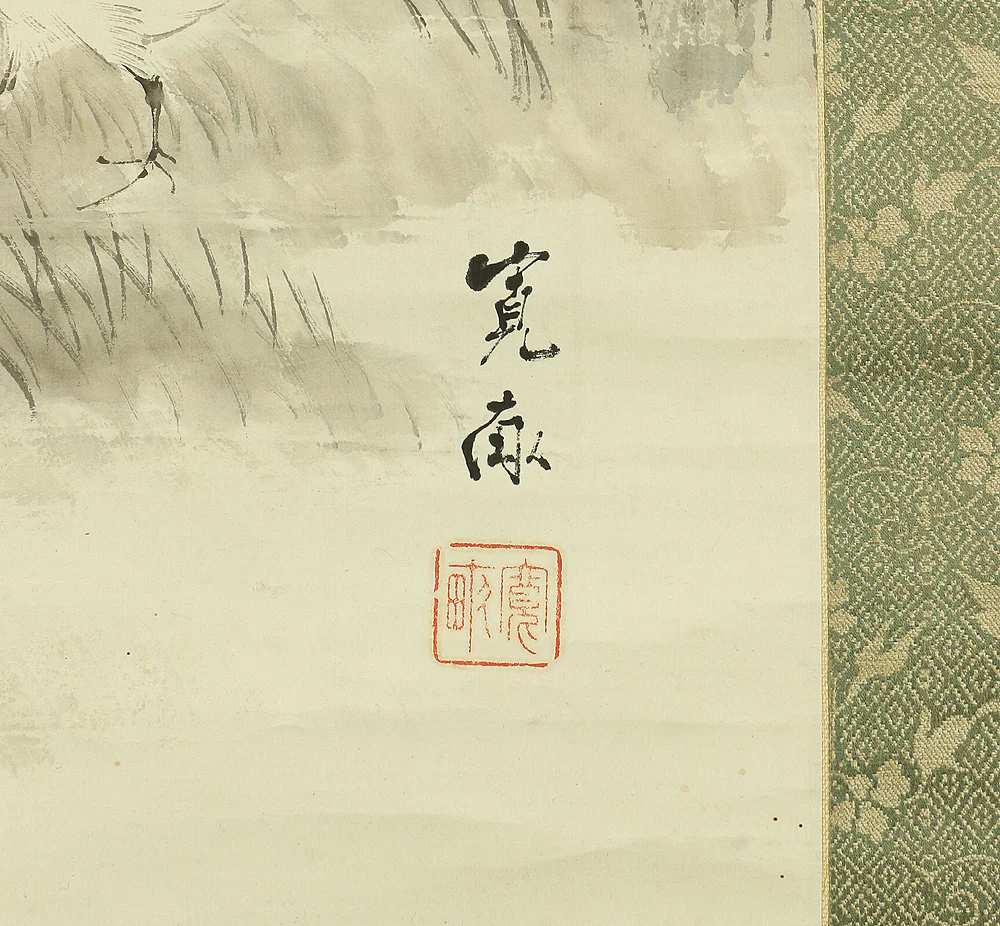 寛畝
寛畝